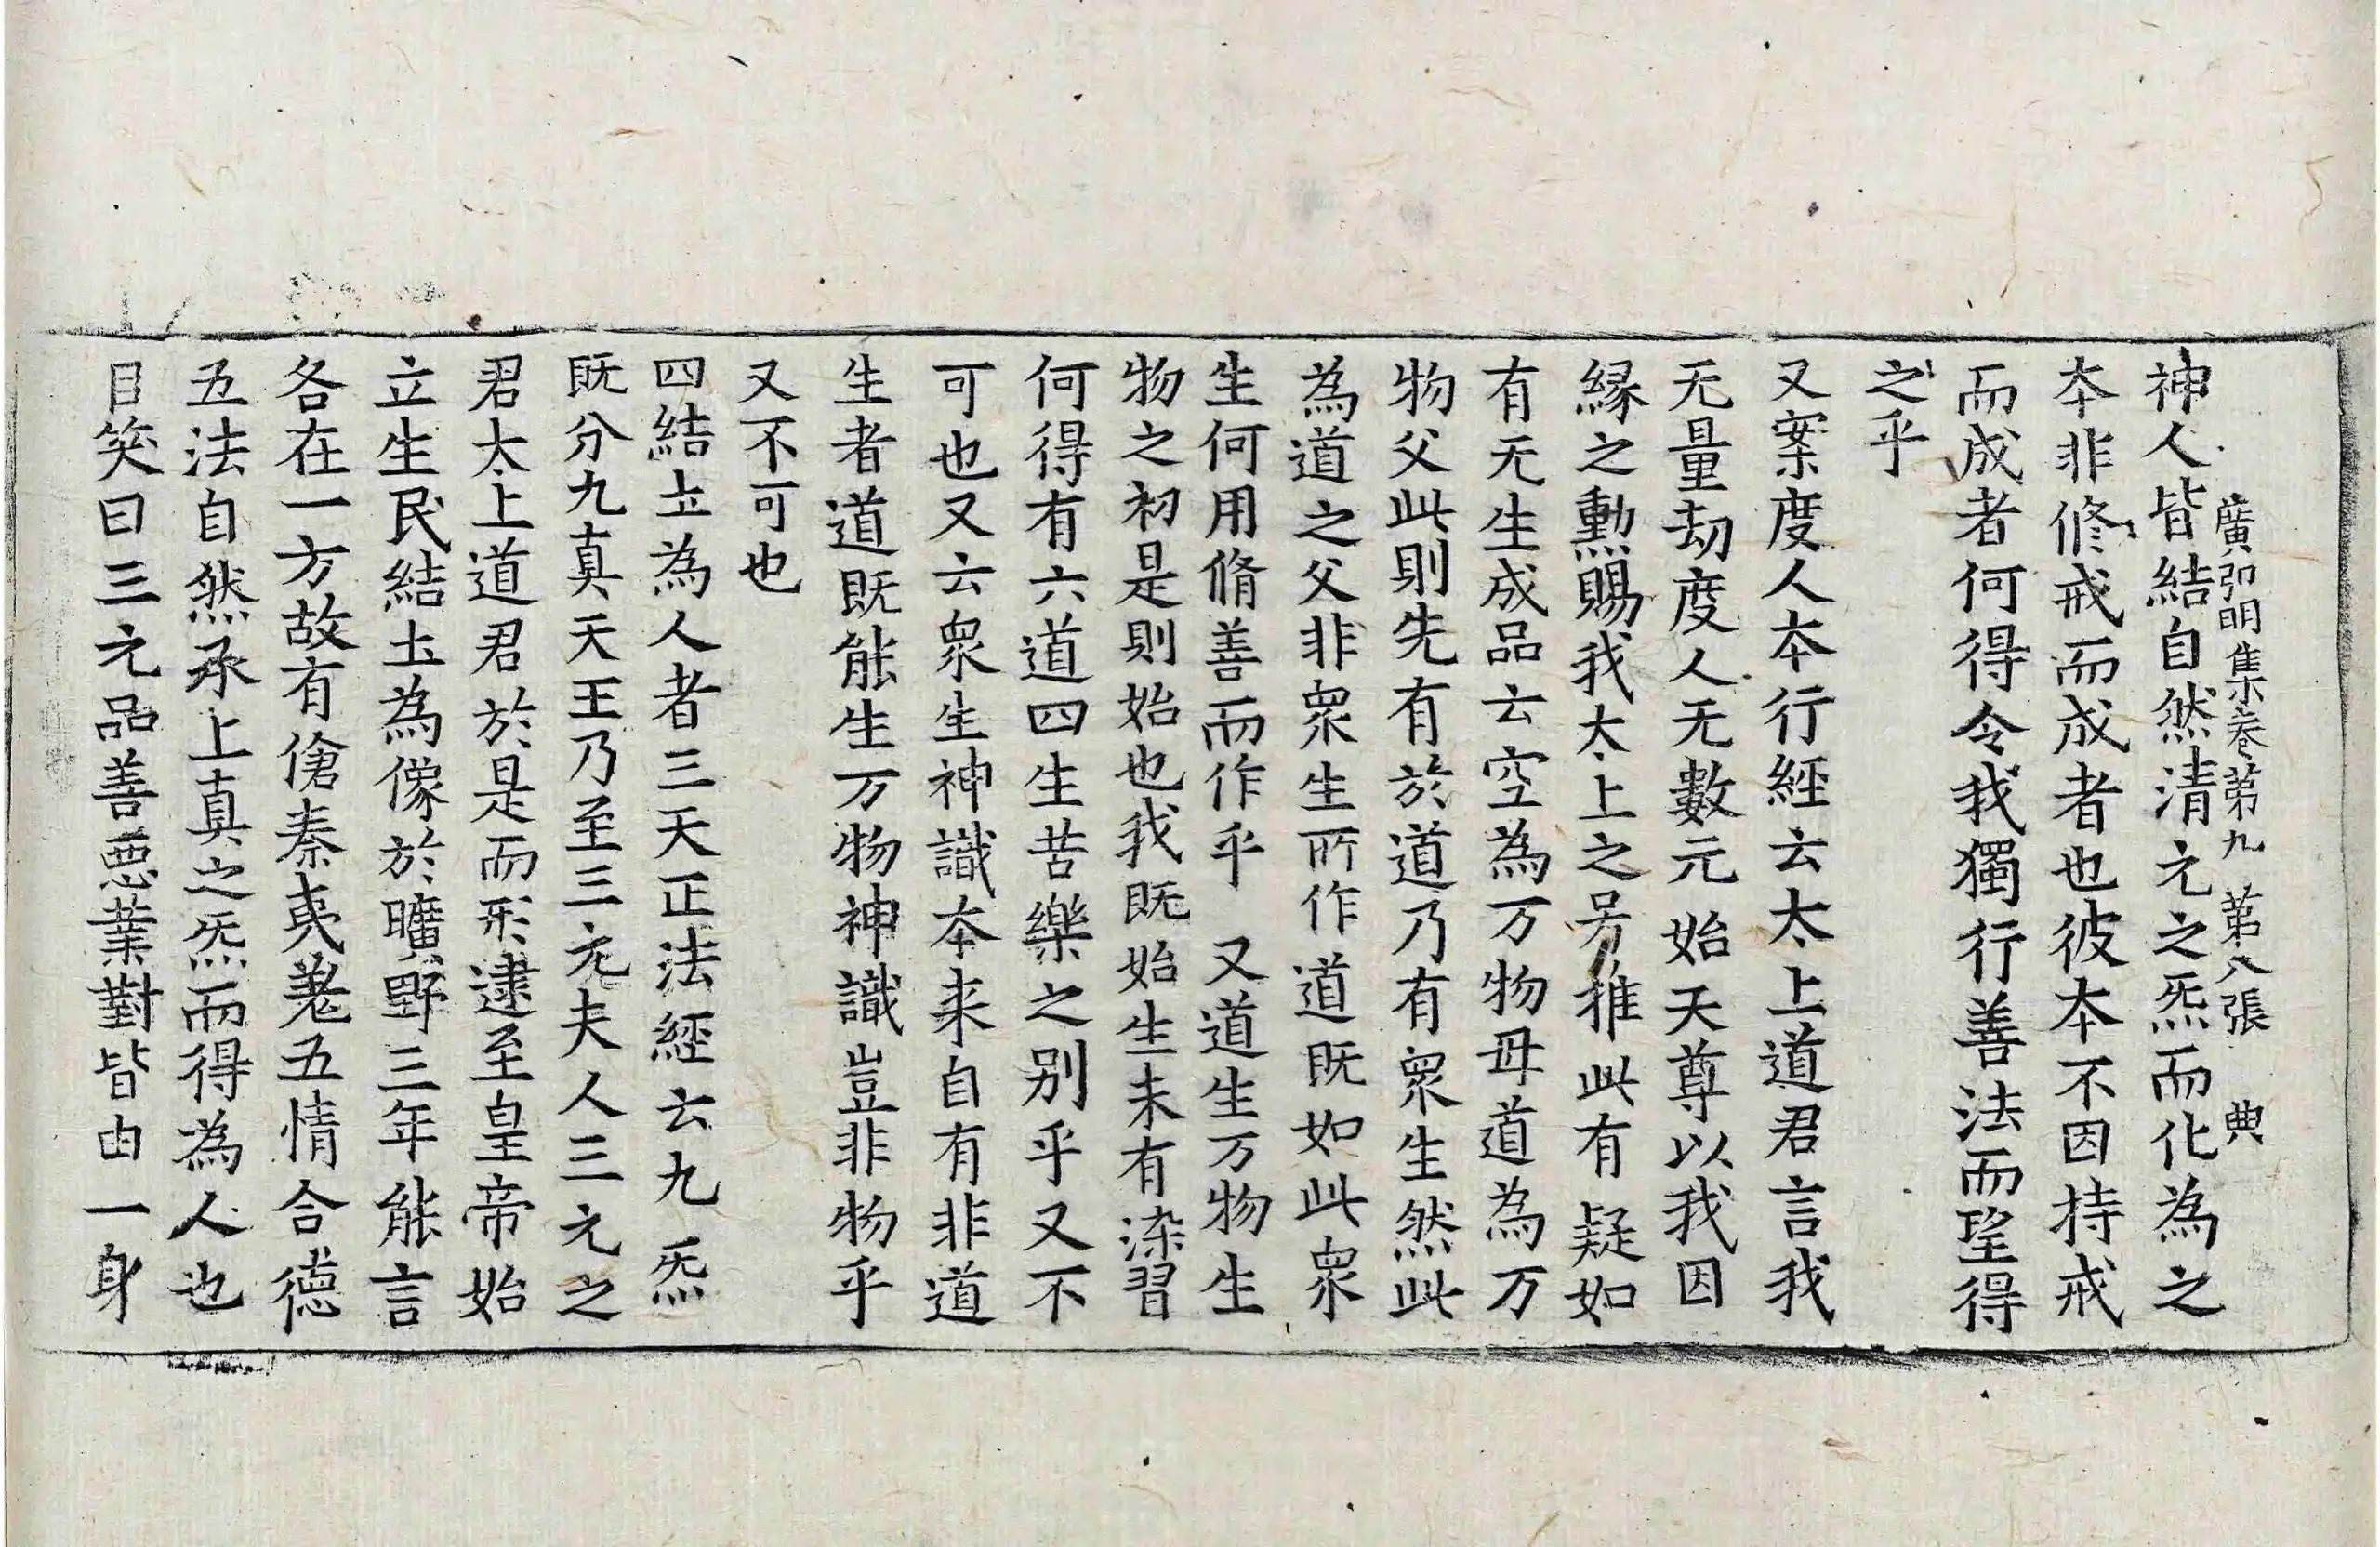 廣弘明集卷第九　第八張　典
神人皆結自然清元之炁而化為之
本非修戒而成者也彼本不因持戒
而成者何得令我獨行善法而望得
之乎
又案度人本行經云太上道君言我
无量劫度人无數元始天尊以我因
緣之勲賜我太上之号推此有疑如
有无生成品云空為万物母道為万
物父此則先有於道乃有衆生然此
為道之父非衆生所作道既如此衆
生何用脩善而作乎　又道生万物生
物之初是則始也我既始生未有染習
何得有六道四生苦樂之别乎又不
可也又云衆生神識本来自有非道
生者道既能生万物神識豈非物乎
又不可也
四結土為人者三天正法經云九炁
既分九真天王乃至三元夫人三元之
君太上道君於是而形逮至皇帝始
立生民結土為像於曠野三年能言
各在一方故有傖秦夷羌五情合德
五法自然承上真之炁而得為人也
目笑曰三元品善惡業對皆由一身